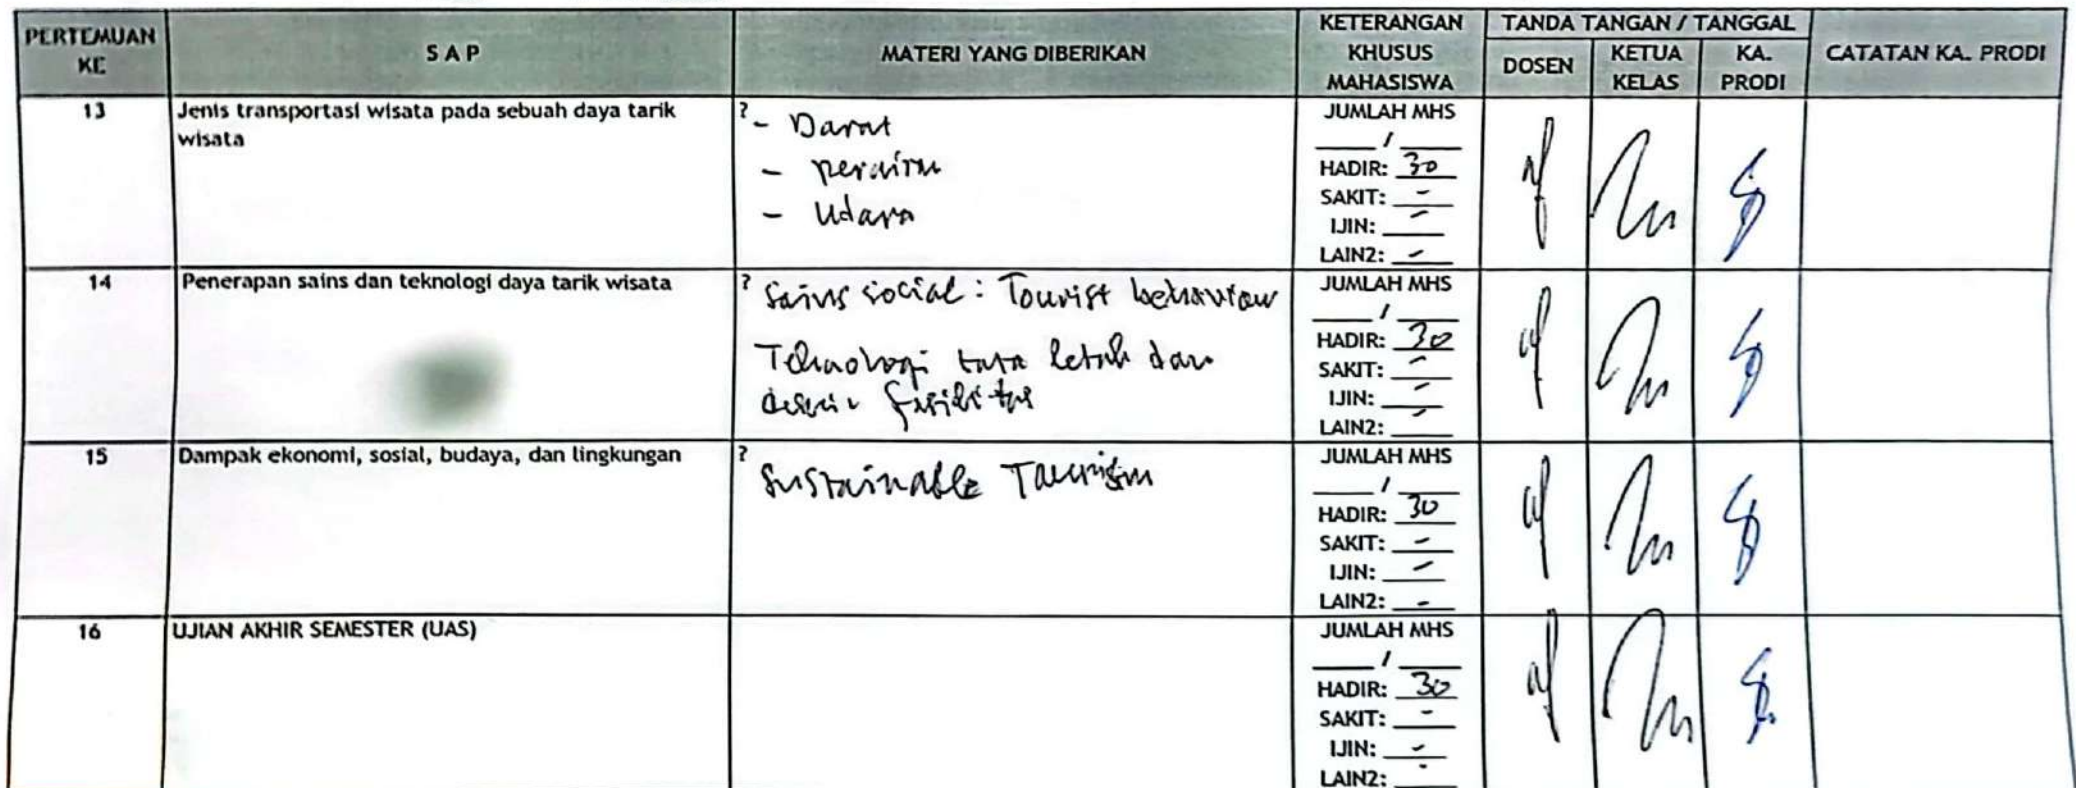 PERTEMUAN KE
S A P
MATERI YANG DIBERIKAN
KETERANGAN KHUSUS MAHASISWA
TANDA TANGAN / TANGGAL
DOSEN
KETUA KELAS
KA. PRODI
CATATAN KA. PRODI
13
Jenis transportasi wisata pada sebuah daya tarik
wisata
?
- Darat
- perairan
- Udara
JUMLAH MHS
/
HADIR: 30
SAKIT: -
IJIN: -
LAIN2: -
14
Penerapan sains dan teknologi daya tarik wisata
? Sains social : Tourist behaviour
Teknologi tata letak dan
desain fasilitas
JUMLAH MHS
/
HADIR: 30
SAKIT: -
IJIN: -
LAIN2: -
15
Dampak ekonomi, sosial, budaya, dan lingkungan
?
Sustainable Tourism
JUMLAH MHS
/
HADIR: 30
SAKIT: -
IJIN: -
LAIN2: -
16
UJIAN AKHIR SEMESTER (UAS)
JUMLAH MHS
/
HADIR: 30
SAKIT: -
IJIN: -
LAIN2: -